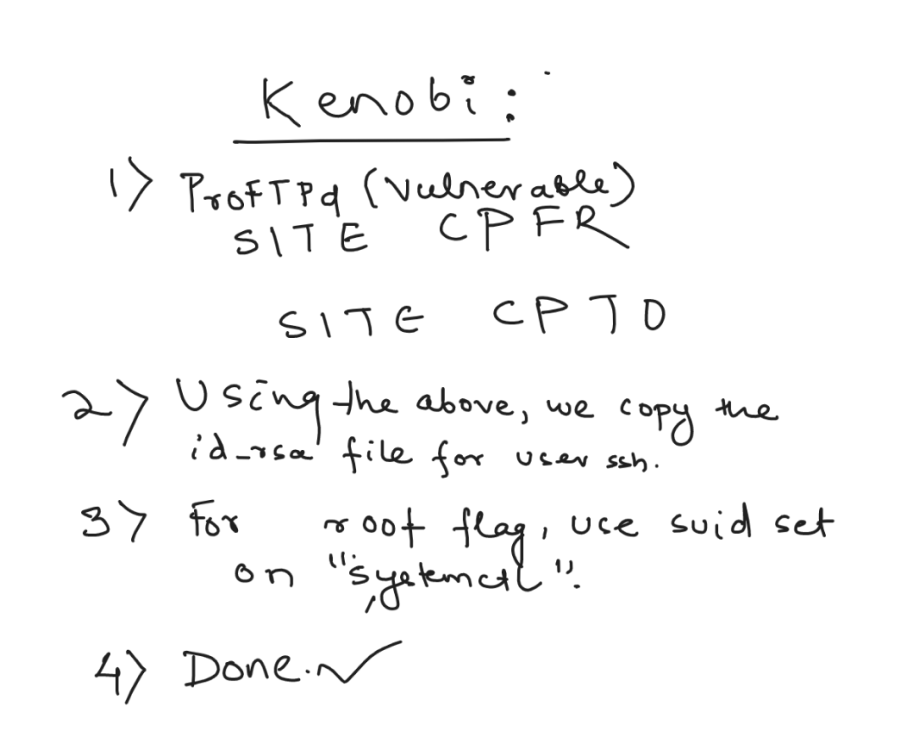 Kenobi:
1) ProFTPd (Vulnerable)
SITE CPFR
SITE CPTO
2) Using the above, we copy the
id_rsa file for user ssh.
3) For root flag, use suid set
on "systemctl".
4) Done. ✓